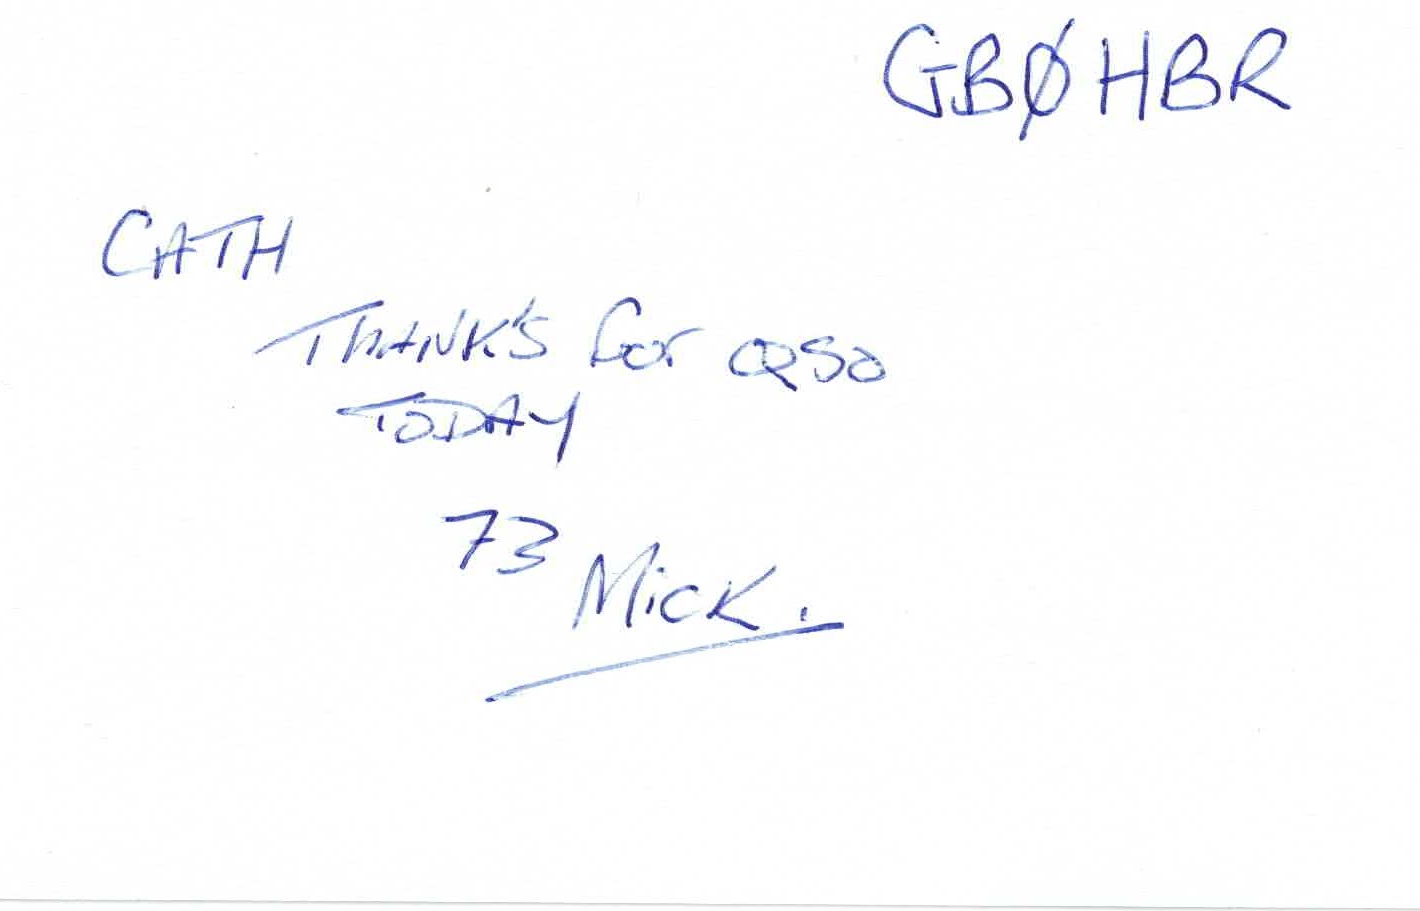 GBØHBR
CATH
THANK'S for QSO
TODAY
73
Mick.